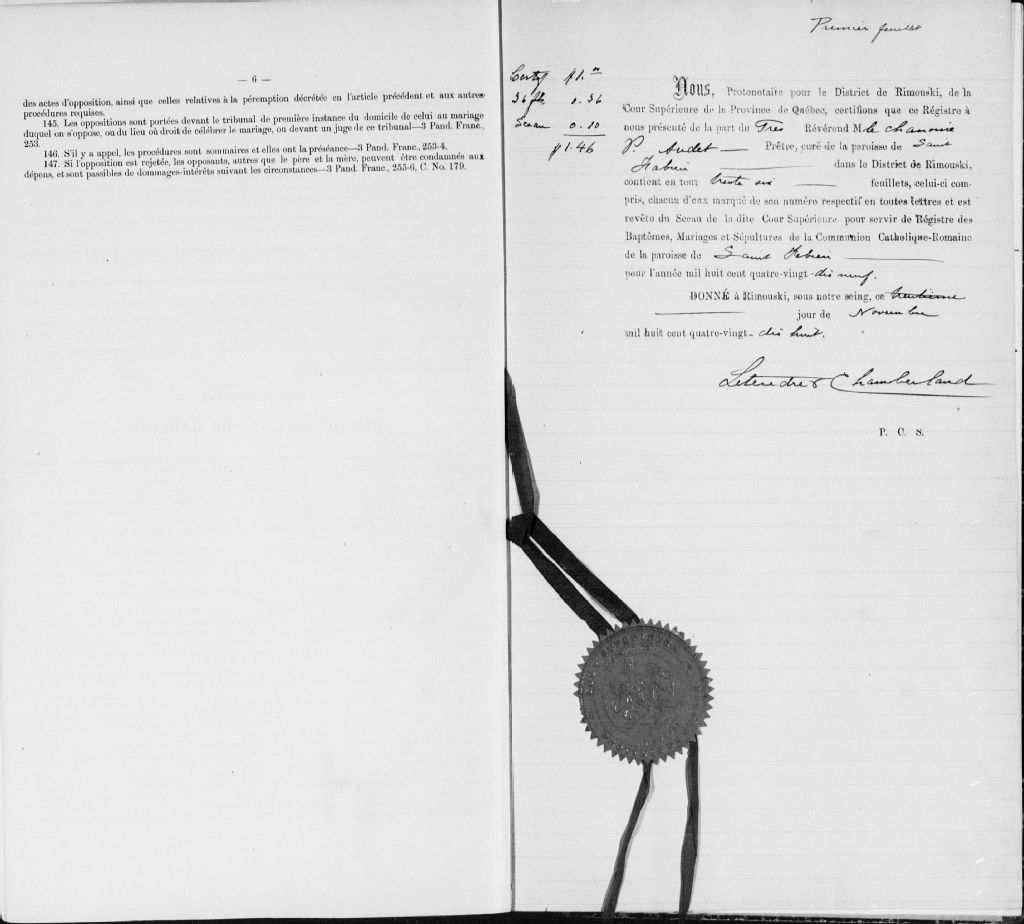 — 6 —
des actes d'opposition, ainsi que celles relatives à la péremption décrétée en l'article précédent et aux autres
procédures requises.
145. Les oppositions sont portées devant le tribunal de première instance du domicile de celui au mariage
duquel on s'oppose, ou du lieu où droit de célébrer le mariage, ou devant un juge de ce tribunal—3 Pand. Franc.,
253.
146. S'il y a appel, les procédures sont sommaires et elles ont la préséance—3 Pand. Franc., 253-4.
147. Si l'opposition est rejetée, les opposants, autres que le père et la mère, peuvent être condamnés aux
dépens, et sont passibles de dommages-intérêts suivant les circonstances—3 Pand. Franc., 255-6, C. No. 179.
Premier feuillet
Certif $1.00
36 fts 0.36
Sceau 0.10
$1.46
Nous, Protonotaire pour le District de Rimouski, de la
Cour Supérieure de la Province de Québec, certifions que ce Régistre à
nous présenté de la part du Très Révérend M. le chanoine
P. Audet — Prêtre, curé de la paroisse de Saint
Fabien — dans le District de Rimouski,
contient en tout trente six — feuillets, celui-ci com-
pris, chacun d'eux marqué de son numéro respectif en toutes lettres et est
revêtu du Sceau de la dite Cour Supérieure pour servir de Régistre des
Baptêmes, Mariages et Sépultures de la Communion Catholique-Romaine
de la paroisse de Saint Fabien —
pour l'année mil huit cent quatre-vingt-dix neuf.
DONNÉ à Rimouski, sous notre seing, ce trentième
— jour de Novembre
mil huit cent quatre-vingt-dix huit.
Letendre & Chamberland
P. C. S.